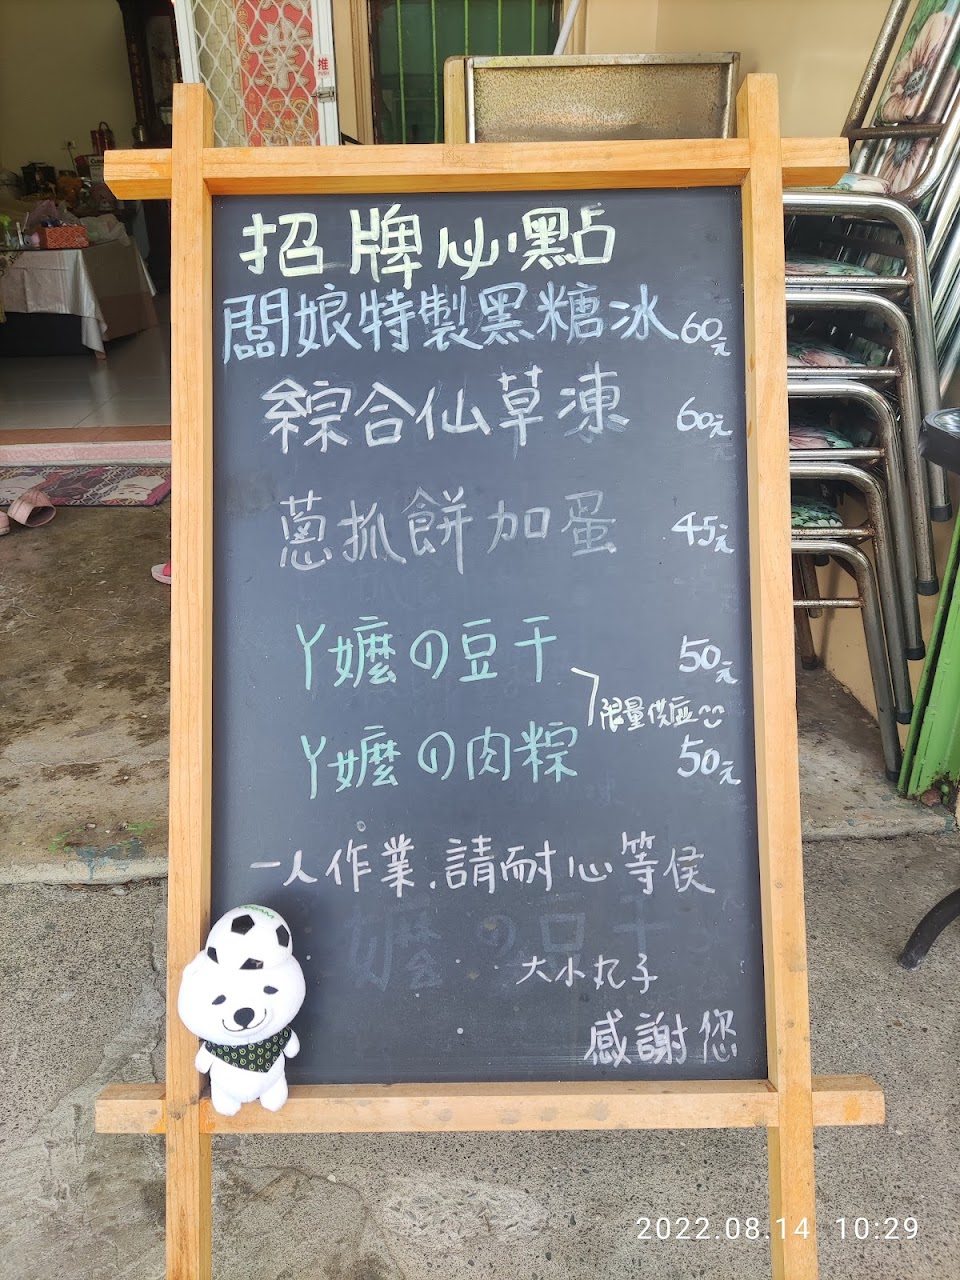 業
推
PUSH
招牌必點
闆娘特製黑糖冰 60元
綜合仙草凍 60元
蔥抓餅加蛋 45元
ㄚ嬤の豆干 50元
限量供應
ㄚ嬤の肉粽 50元
一人作業.請耐心等侯
嬤の豆干
大小丸子
感謝您
2022.08.14 10:29